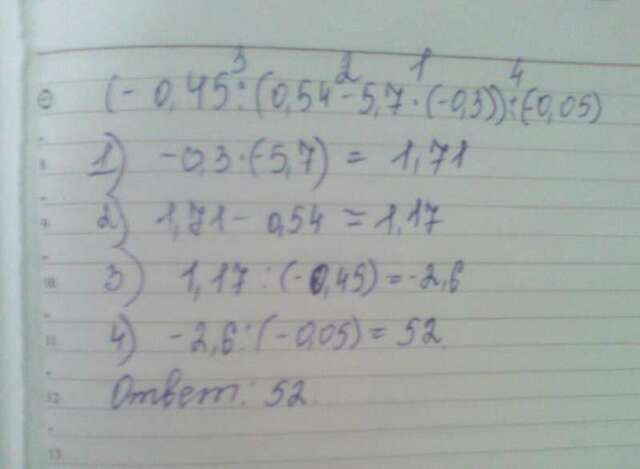 3 2 1 4
(- 0,45 : (0,54 - 5,7 · (-0,3)) : (-0,05)
1) -0,3 · (-5,7) = 1,71
2) 1,71 - 0,54 = 1,17
3) 1,17 : (-0,45) = -2,6
4) -2,6 : (-0,05) = 52.
Ответ: 52.